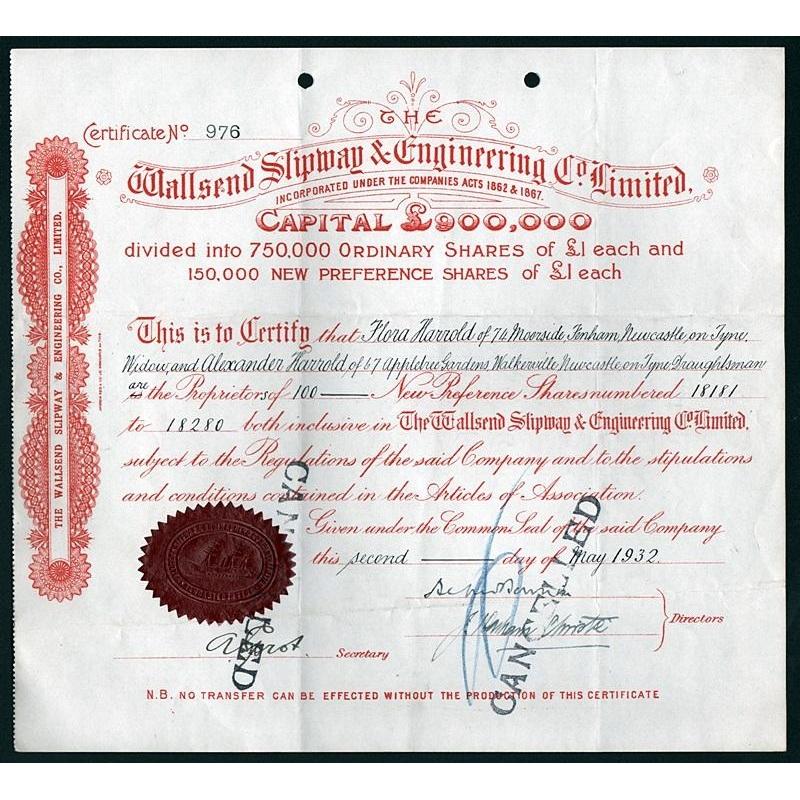 Certificate No. 976
THE
Wallsend Slipway & Engineering Co. Limited,
INCORPORATED UNDER THE COMPANIES ACTS 1862 & 1867.
CAPITAL £900,000
divided into 750,000 ORDINARY SHARES of £1 each and
150,000 NEW PREFERENCE SHARES of £1 each
THE WALLSEND SLIPWAY & ENGINEERING CO., LIMITED.
This is to Certify that Flora Harrold of 74 Moorside, Fenham, Newcastle on Tyne,
Widow, and Alexander Harrold of 47 Appletree Gardens Walkerville Newcastle on Tyne Draughtsman
are the Proprietors of 100 New Preference Shares numbered 18181
to 18280 both inclusive in The Wallsend Slipway & Engineering Co. Limited,
subject to the Regulations of the said Company and to the stipulations
and conditions contained in the Articles of Association.
Given under the Common Seal of the said Company
this second day of May 1932.
Directors
Secretary
CANCELLED
CANCELLED
N.B. NO TRANSFER CAN BE EFFECTED WITHOUT THE PRODUCTION OF THIS CERTIFICATE